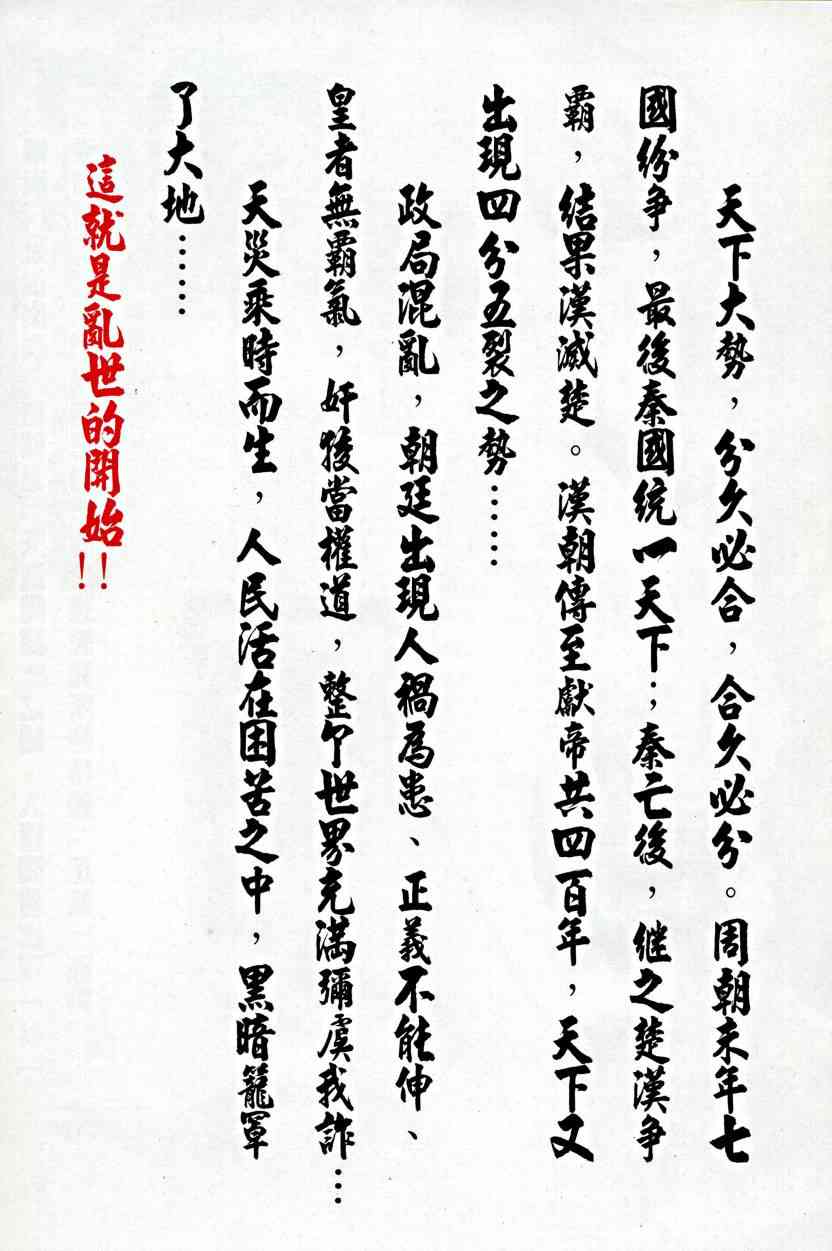 天下大勢，分久必合，合久必分。周朝末年七
國紛爭，最後秦國統一天下；秦亡後，繼之楚漢爭
霸，結果漢滅楚。漢朝傳至獻帝共四百年，天下又
出現四分五裂之勢……
政局混亂，朝廷出現人禍為患、正義不能伸、
皇者無霸氣，奸狻當權道，整个世界充滿彌虞我詐…
天災乘時而生，人民活在困苦之中，黑暗籠罩
了大地……
這就是亂世的開始!!